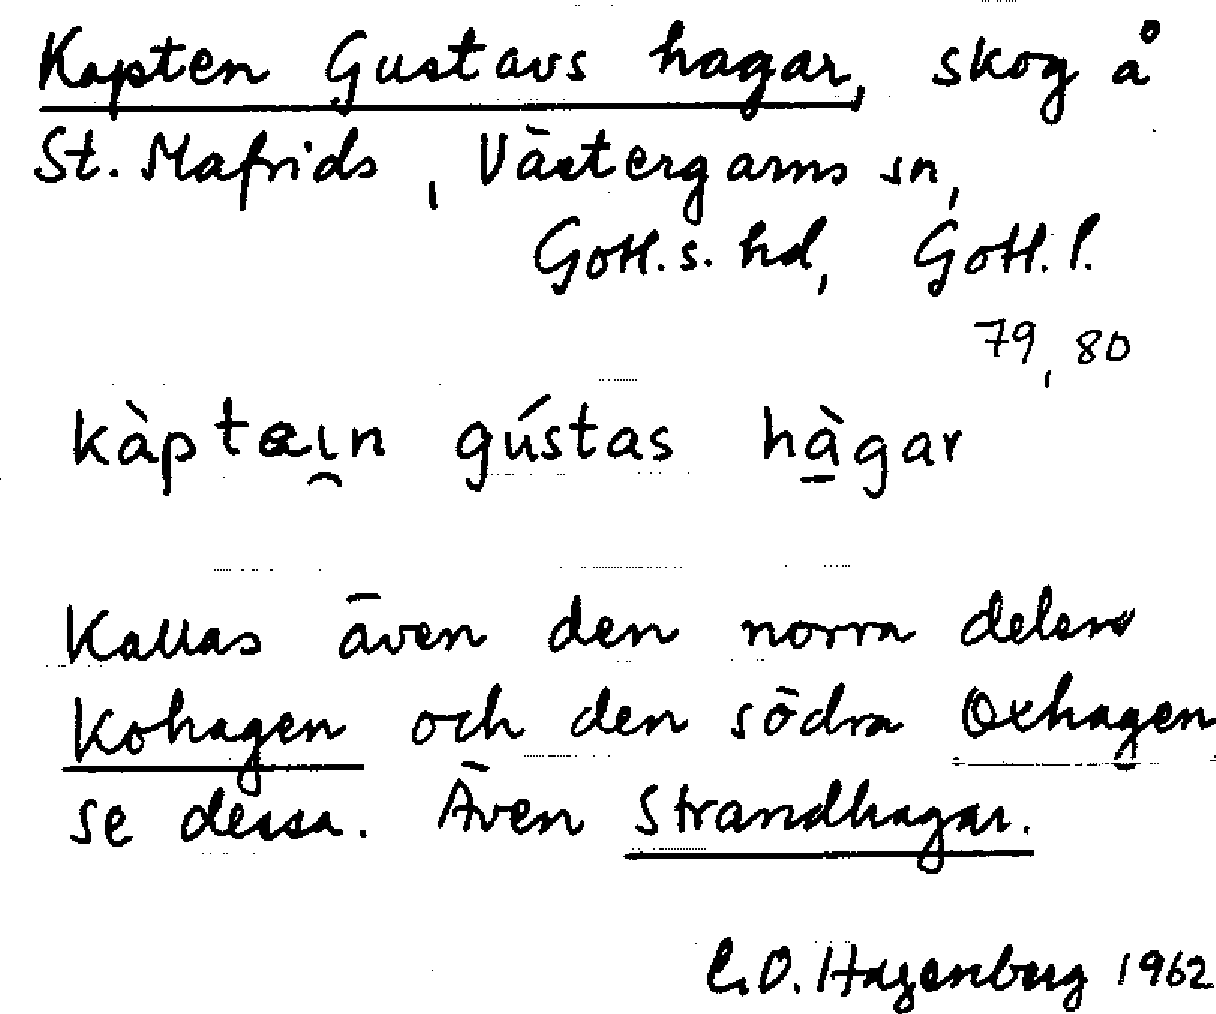 Kapten Gustavs hagar, skog å
St. Mafrids, Västergarns sn,
Gotl. s. hd, Gotl. l.
79, 80
kàptæı̯n gústas hà̱gar
Kallas även den norra delen
Kohagen och den södra Oxhagen
se dessa. Även Strandhagar.
C.O. Hagenberg 1962